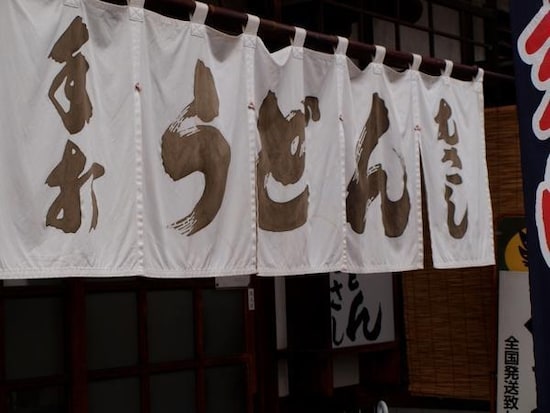 手打
うどん
むさし
どん
さし
全国発送致